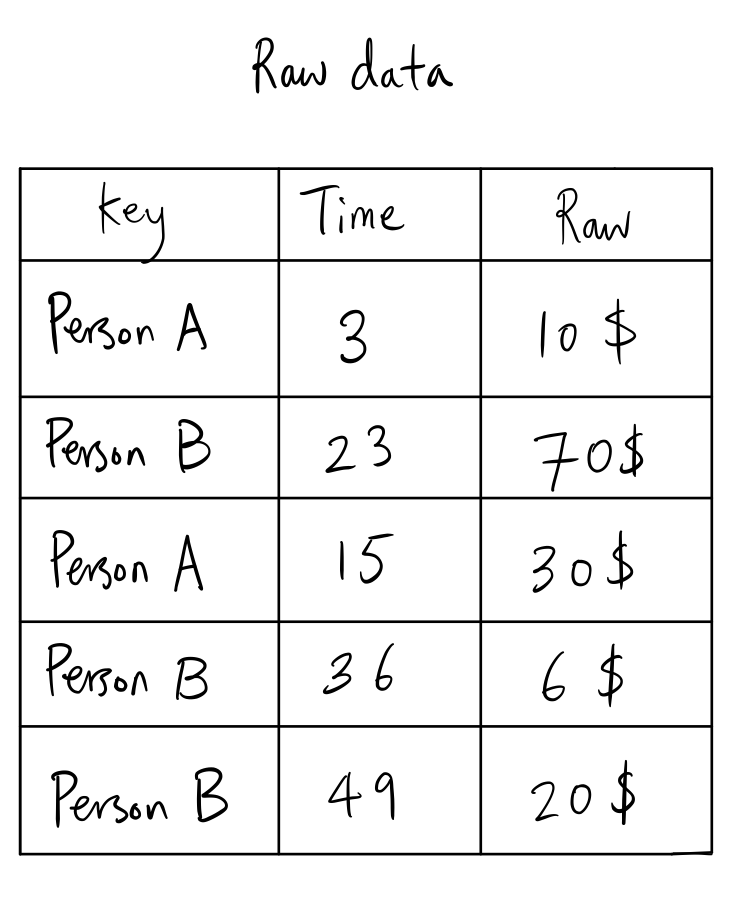 Raw data
Key Time Raw
Person A 3 10 $
Person B 23 70$
Person A 15 30$
Person B 36 6 $
Person B 49 20$